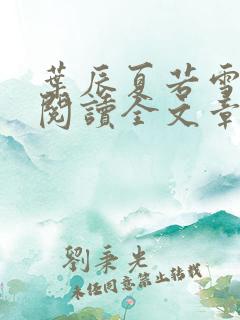 葉辰夏若雪
閱讀全文章
劉秉光
未經同意禁止转载